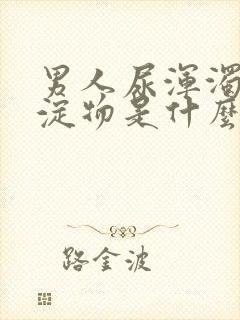 男人尿渾濁
淀物是什麼
路金波